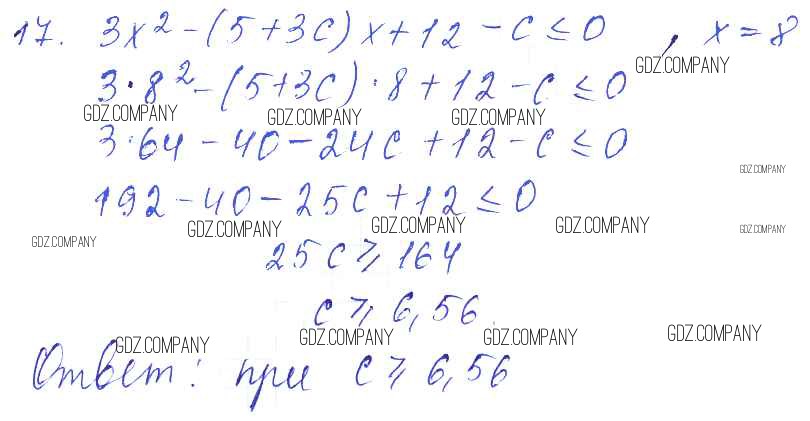 17. 3x² - (5+3c)x + 12 - c ≤ 0, x = 8
GDZ.COMPANY
3·8² - (5+3c)·8 + 12 - c ≤ 0
GDZ.COMPANY GDZ.COMPANY GDZ.COMPANY
3·64 - 40 - 24c + 12 - c ≤ 0
GDZ.COMPANY
192 - 40 - 25c + 12 ≤ 0
GDZ.COMPANY GDZ.COMPANY GDZ.COMPANY GDZ.COMPANY
GDZ.COMPANY
25c ⩾ 164
c ⩾ 6,56
GDZ.COMPANY GDZ.COMPANY GDZ.COMPANY GDZ.COMPANY
Ответ: при c ⩾ 6,56